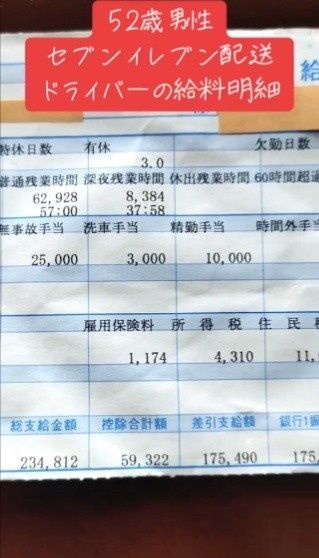 52歳男性
セブンイレブン配送
ドライバーの給料明細
給
特休日数 有休 欠勤日数
3.0
普通残業時間 深夜残業時間 休出残業時間 60時間超
62,928 8,384
57:00 37:58
無事故手当 洗車手当 精勤手当 時間外手
25,000 3,000 10,000
雇用保険料 所得税 住民
1,174 4,310 11,
総支給金額 控除合計額 差引支給額 銀行1振
234,812 59,322 175,490 175,